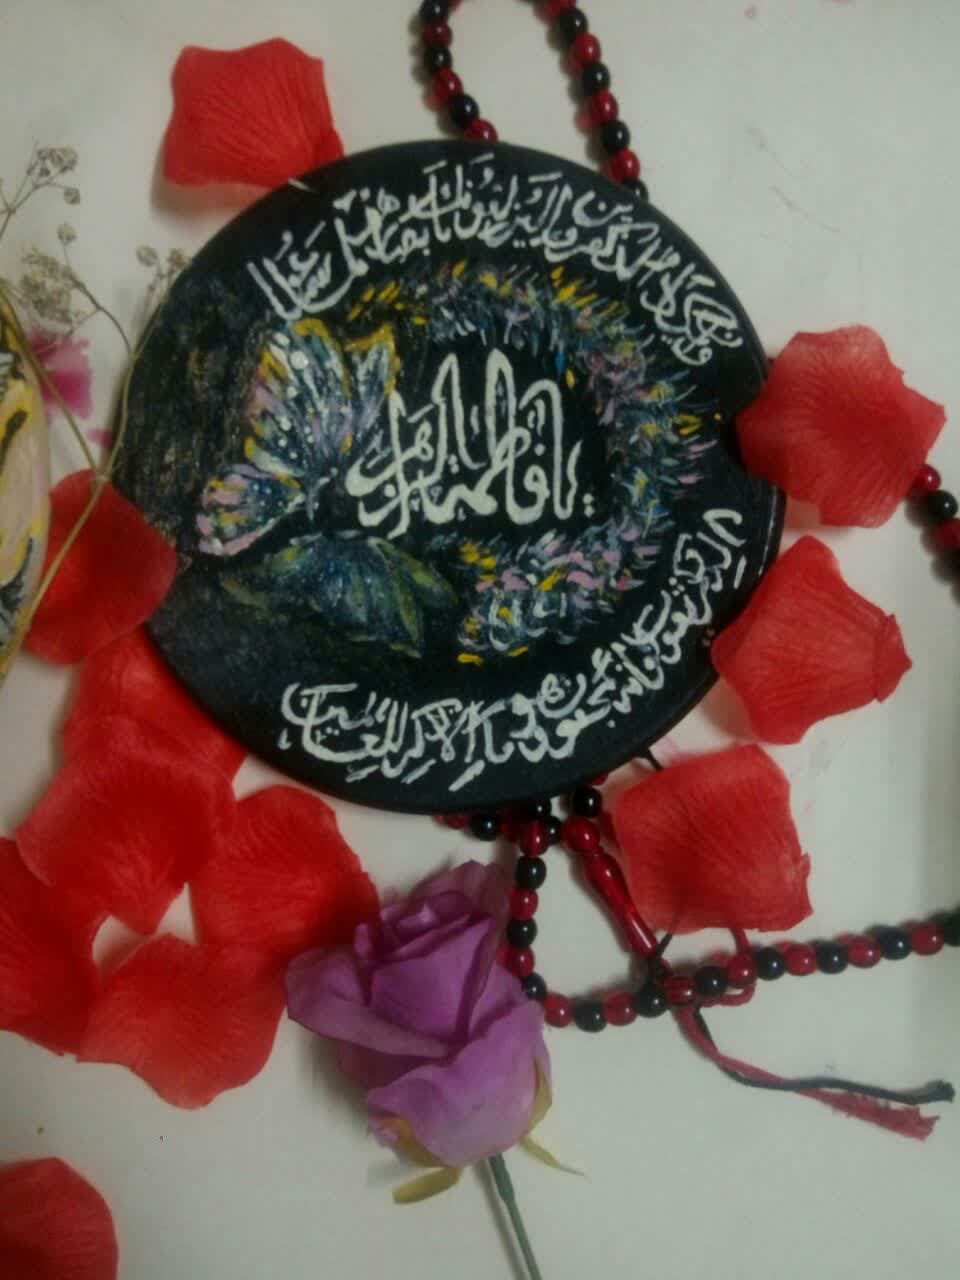 وان یکاد الذین کفروا لیزلقونک بابصارهم لما سمعوا
یا فاطمة الزهرا
الذکر و یقولون انه لمجنون و ما هو الا ذکر للعالمین